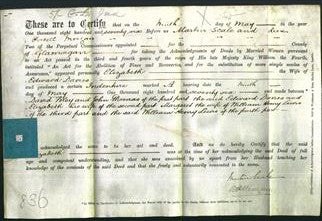 These are to Certify that on the ninth day of May in the year
One thousand eight hundred and seventy one Before us Martin Scale and
Two of the Perpetual Commissioners appointed for the County
of Glamorgan for taking the Acknowledgments of Deeds by Married Women pursuant
to an Act passed in the third and fourth years of the reign of His late Majesty King William the Fourth,
intituled "An Act for the Abolition of Fines and Recoveries, and for the substitution of more simple modes of
Assurance," appeared personally Elizabeth the Wife of
Edward Jones
and produced a certain Indenture marked A bearing date the ninth
day of May One thousand eight hundred and seventy one and made between
David and John Thomas of the first part the said Edward Jones and
Elizabeth his wife of the second part Margaret the wife of William Henry
of the third part and the said William Henry of the fourth part
and acknowledged the same to be her act and deed. And we do hereby Certify that the said
Elizabeth was at the time of her acknowledging the said Deed of full
age and competent understanding, and that she was examined by us apart from her Husband touching her
knowledge of the contents of the said Deed and that she freely and voluntarily consented to the same.
Martin Scale
836